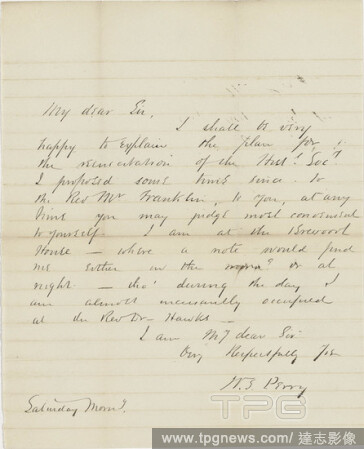 My dear Sir,
I shall be very
happy to explain the plan for
the resuscitation of the Hist! Soc!
I proposed some time since to
the Rev Mr Franklin, to you, at any
time you may judge most convenient
to yourself. I am at the
House – where a note would find
me either in the morn! or at
night – tho' during the day I
am almost incessantly occupied
at the Rev Dr Hawks –
I am My dear Sir
Very Respectfully Yrs
W. S. Perry
Saturday Morn!
TPG
www.tpgnews.com/達志影像